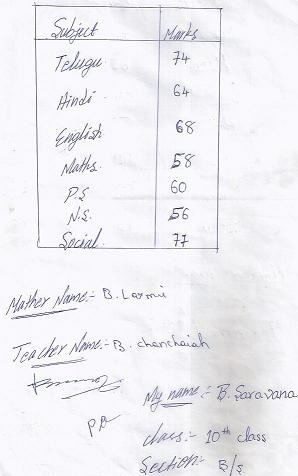 Subject Marks
Telugu 74
Hindi 64
English 68
Maths 58
P.S 60
N.S. 56
Social 77
Mather Name:- B. Laxmi
Teacher Name:- B. chenchaiah
My name:- B. Saravana
class:- 10th class
Section:- B/S